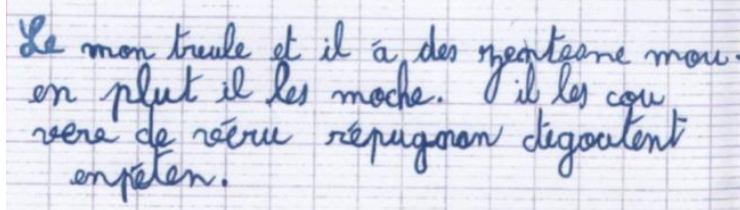 Le mon treule et il a des menteane mou.
en plut il les moche. il les cou
vere de vééru répugnan dégoutent
enpéten.